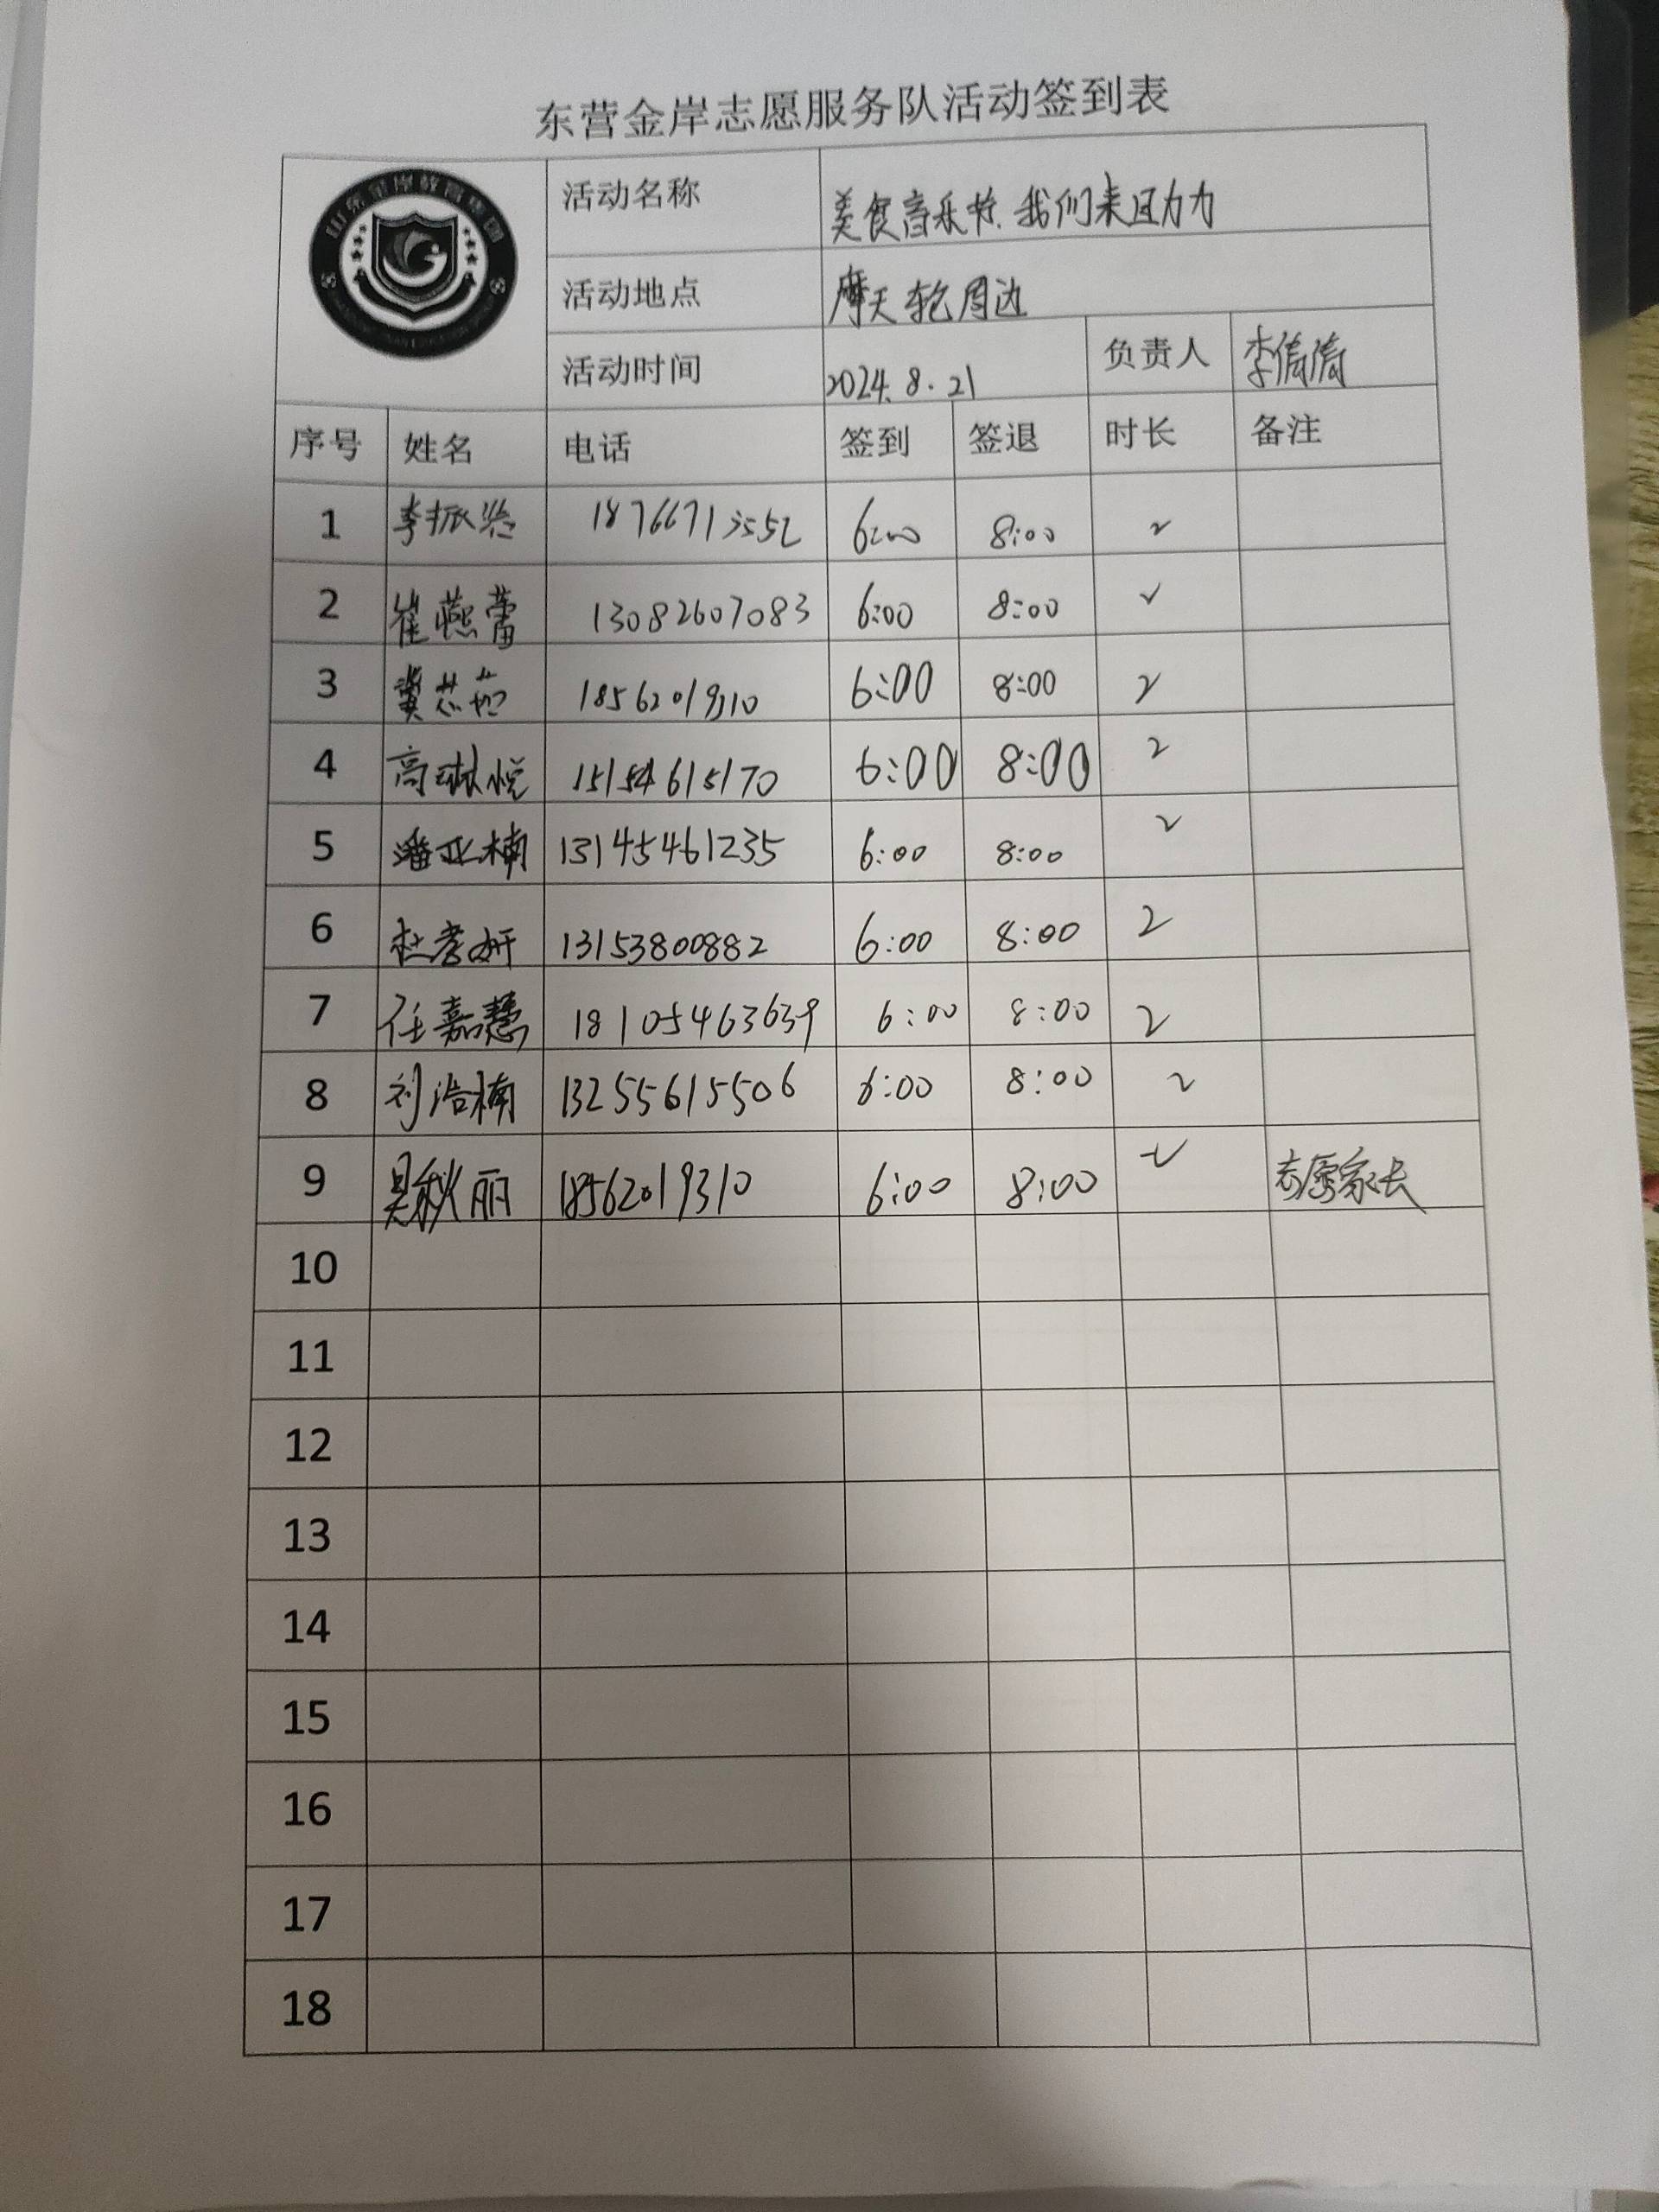 东营金岸志愿服务队活动签到表
山东金岸教育集团
活动名称 美食音乐节.我们来助力
活动地点 摩天轮周边
活动时间 2024.8.21 负责人 李倩倩
序号 姓名 电话 签到 签退 时长 备注
1 李振 18766713552 6:00 8:00 2
2 崔燕蕾 13082607083 6:00 8:00 2
3 冀芯茹 18562019310 6:00 8:00 2
4 高琳悦 15154615170 6:00 8:00 2
5 潘亚楠 13145461235 6:00 8:00 2
6 杜孝妍 13153800882 6:00 8:00 2
7 任嘉慧 18105463639 6:00 8:00 2
8 刘浩楠 13255615506 6:00 8:00 2
9 吴秋丽 18562019310 6:00 8:00 2 志愿家长
10
11
12
13
14
15
16
17
18